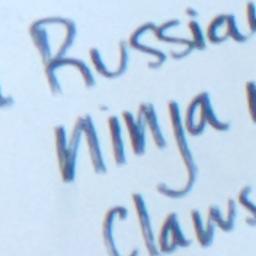 Russian
ninja
claws